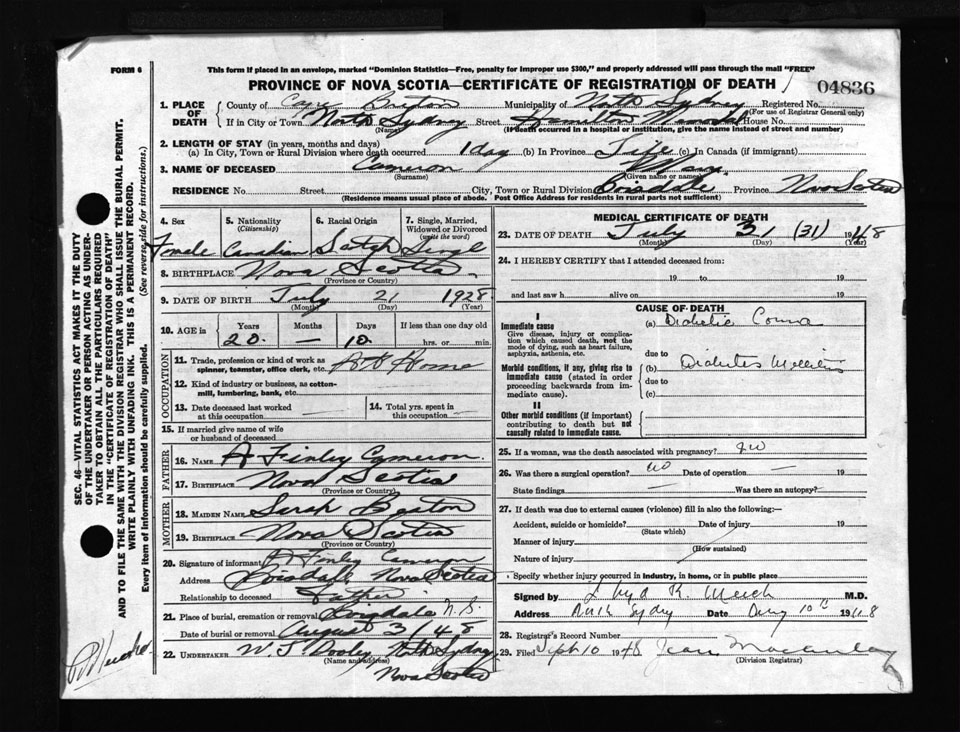 FORM 6
This form if placed in an envelope, marked "Dominion Statistics—Free, penalty for improper use $300," and properly addressed will pass through the mail "FREE"
PROVINCE OF NOVA SCOTIA—CERTIFICATE OF REGISTRATION OF DEATH
04836
1. PLACE OF DEATH
County of Cape Breton Municipality of North Sydney Registered No.
(For use of Registrar General only)
If in City or Town North Sydney Street Hamilton Memorial House No.
(Name) (If death occurred in a hospital or institution, give the name instead of street and number)
2. LENGTH OF STAY (in years, months and days)
(a) In City, Town or Rural Division where death occurred 1 day (b) In Province Life (c) In Canada (if immigrant)
3. NAME OF DECEASED Cameron Mary
(Surname) (Given name or names)
RESIDENCE No. Street City, Town or Rural Division Boisdale Province Nova Scotia
(Residence means usual place of abode. Post Office Address for residents in rural parts not sufficient)
4. Sex Female
5. Nationality (Citizenship) Canadian
6. Racial Origin Scotch
7. Single, Married, Widowed or Divorced (write the word) Single
8. BIRTHPLACE Nova Scotia
(Province or Country)
9. DATE OF BIRTH July 21 1928
(Month) (Day) (Year)
10. AGE in Years Months Days If less than one day old
20 — 10 hrs. or min.
OCCUPATION
11. Trade, profession or kind of work as spinner, teamster, office clerk, etc. At Home
12. Kind of industry or business, as cotton-mill, lumbering, bank, etc.
13. Date deceased last worked at this occupation
14. Total yrs. spent in this occupation
15. If married give name of wife or husband of deceased
FATHER
16. NAME A Finley Cameron
17. BIRTHPLACE Nova Scotia
(Province or Country)
MOTHER
18. MAIDEN NAME Sarah Beaton
19. BIRTHPLACE Nova Scotia
(Province or Country)
20. Signature of informant A Finley Cameron
Address Boisdale Nova Scotia
Relationship to deceased Father
21. Place of burial, cremation or removal Boisdale N.S.
Date of burial or removal August 3/48
22. UNDERTAKER W. J Dooley, North Sydney
(Name and address)
Nova Scotia
MEDICAL CERTIFICATE OF DEATH
23. DATE OF DEATH July 31 (31) 1948
(Month) (Day) (Year)
24. I HEREBY CERTIFY that I attended deceased from:
19 to 19
and last saw h alive on 19
CAUSE OF DEATH
I
Immediate cause
Give disease, injury or complication which caused death, not the mode of dying, such as heart failure, asphyxia, asthenia, etc.
(a) Diabetic Coma
due to
Morbid conditions, if any, giving rise to immediate cause (stated in order proceeding backwards from immediate cause).
(b) Diabetes Mellitus
due to
(c)
II
Other morbid conditions (if important) contributing to death but not causally related to immediate cause.
25. If a woman, was the death associated with pregnancy? no
26. Was there a surgical operation? no Date of operation — 19
State findings — Was there an autopsy? —
27. If death was due to external causes (violence) fill in also the following:—
Accident, suicide or homicide? Date of injury 19
(State which)
Manner of injury
(How sustained)
Nature of injury
Specify whether injury occurred in industry, in home, or in public place
Signed by K. M.D.
Address North Sydney Date Aug 10 1948
28. Registrar's Record Number
29. Filed Sept 10 1948 Jean
(Division Registrar)
SEC. 46—VITAL STATISTICS ACT MAKES IT THE DUTY
OF THE UNDERTAKER OR PERSON ACTING AS UNDERTAKER TO OBTAIN ALL THE PARTICULARS REQUIRED
IN THE "CERTIFICATE OF REGISTRATION OF DEATH"
AND TO FILE THE SAME WITH THE DIVISION REGISTRAR WHO SHALL ISSUE THE BURIAL PERMIT.
WRITE PLAINLY WITH UNFADING INK. THIS IS A PERMANENT RECORD.
Every item of information should be carefully supplied. (See reverse side for instructions.)